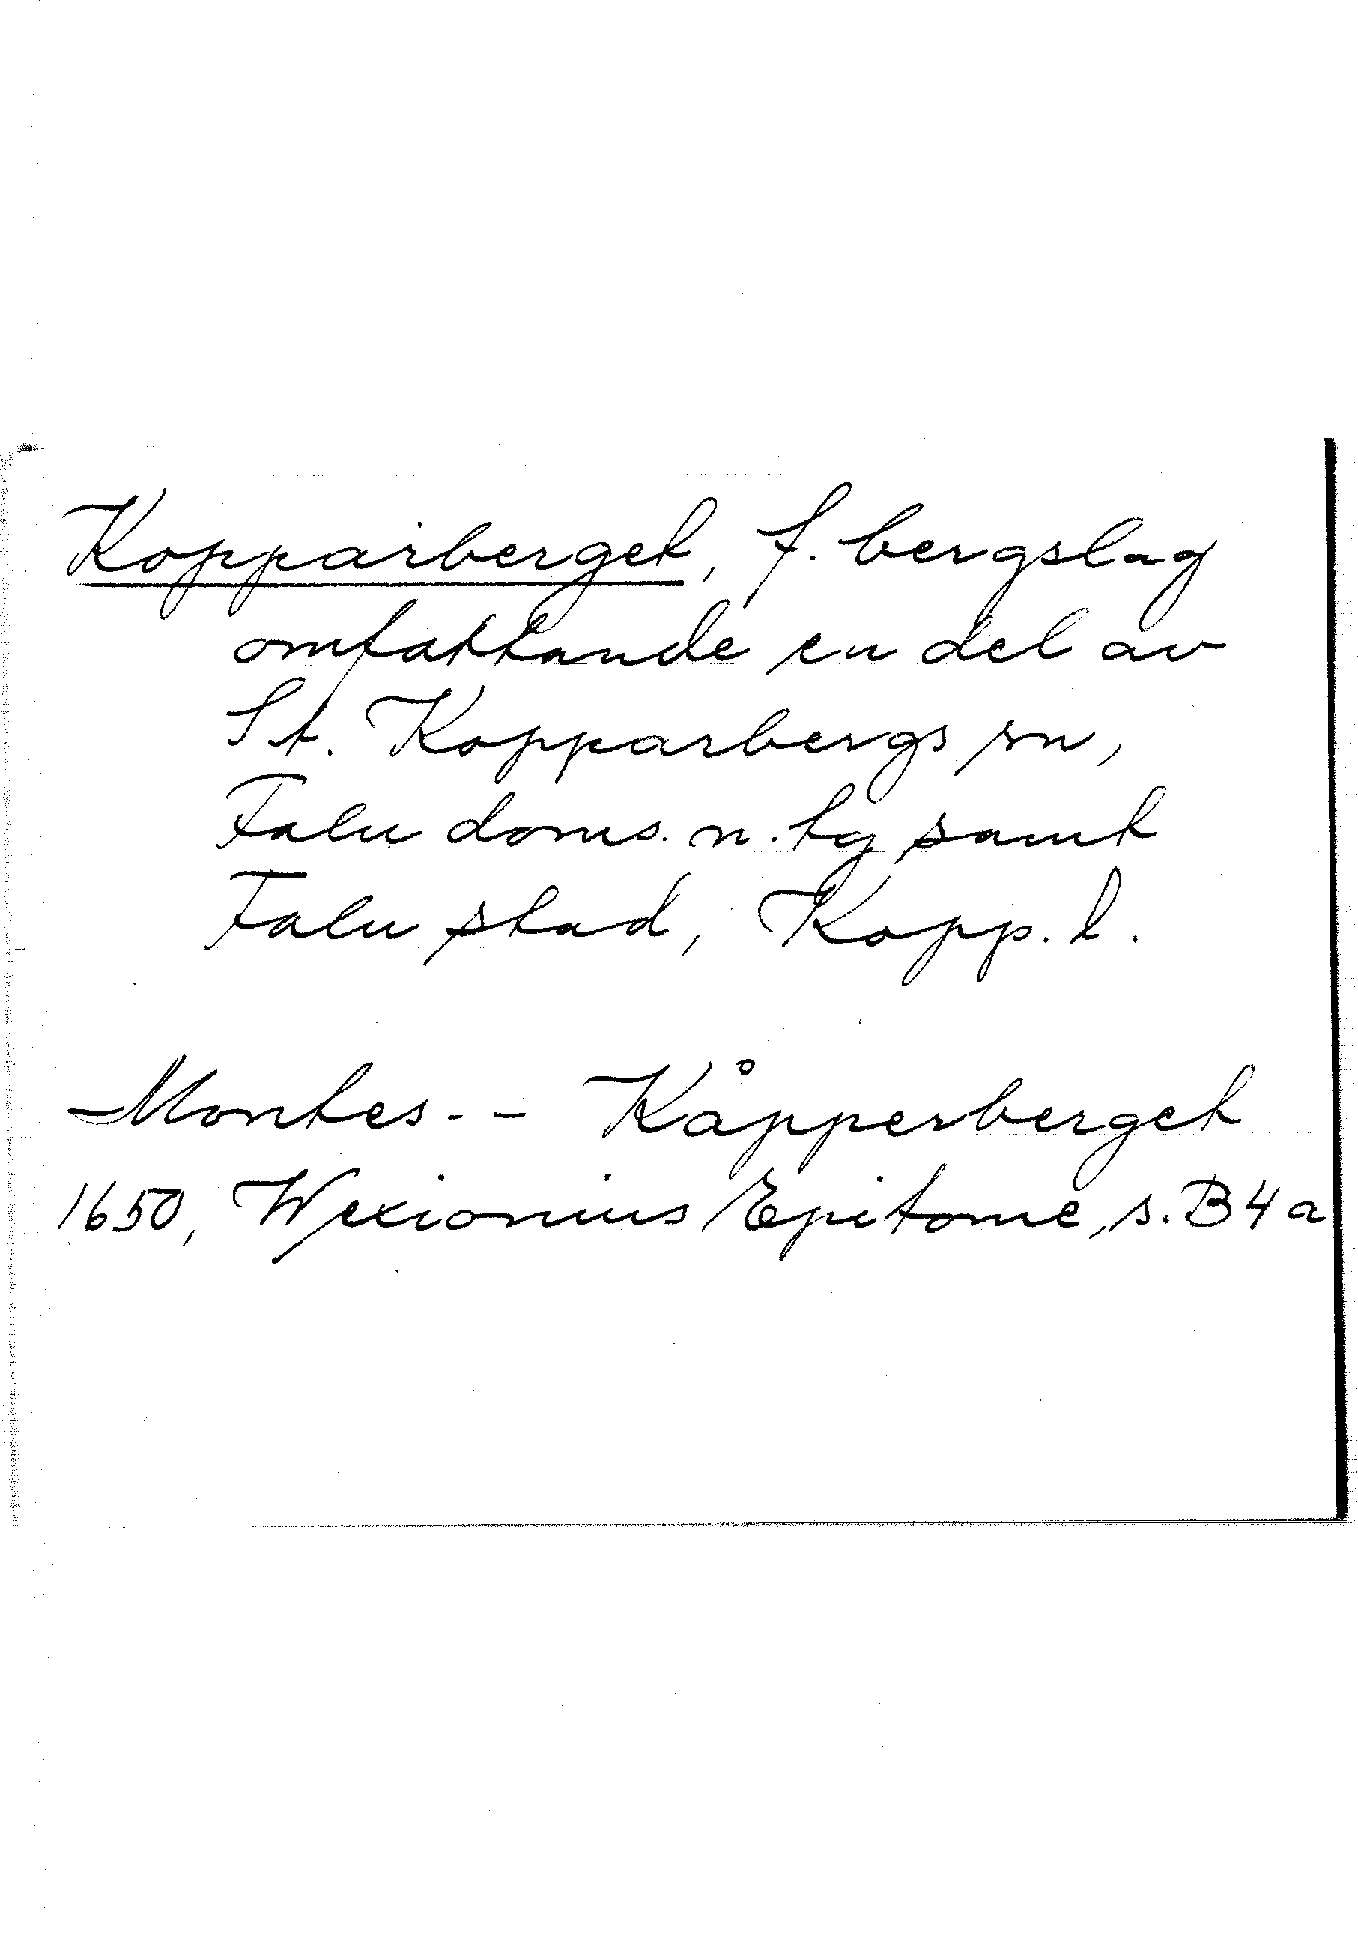 Kopparberget, f. bergslag
omfattande en del av
St. Kopparbergs sn,
Falu doms. n. tg samt
Falu stad, Kopp. l.
Montes -- Kåpperberget
1650, Wexionius Epitome, s. B4a